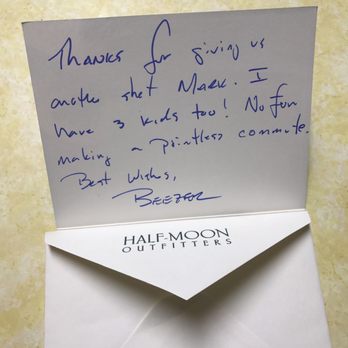 Thanks for giving us
another shot Mark. I
have 3 kids too! No fun
making a pointless commute.
Best Wishes,
BEEZER
HALF-MOON
OUTFITTERS